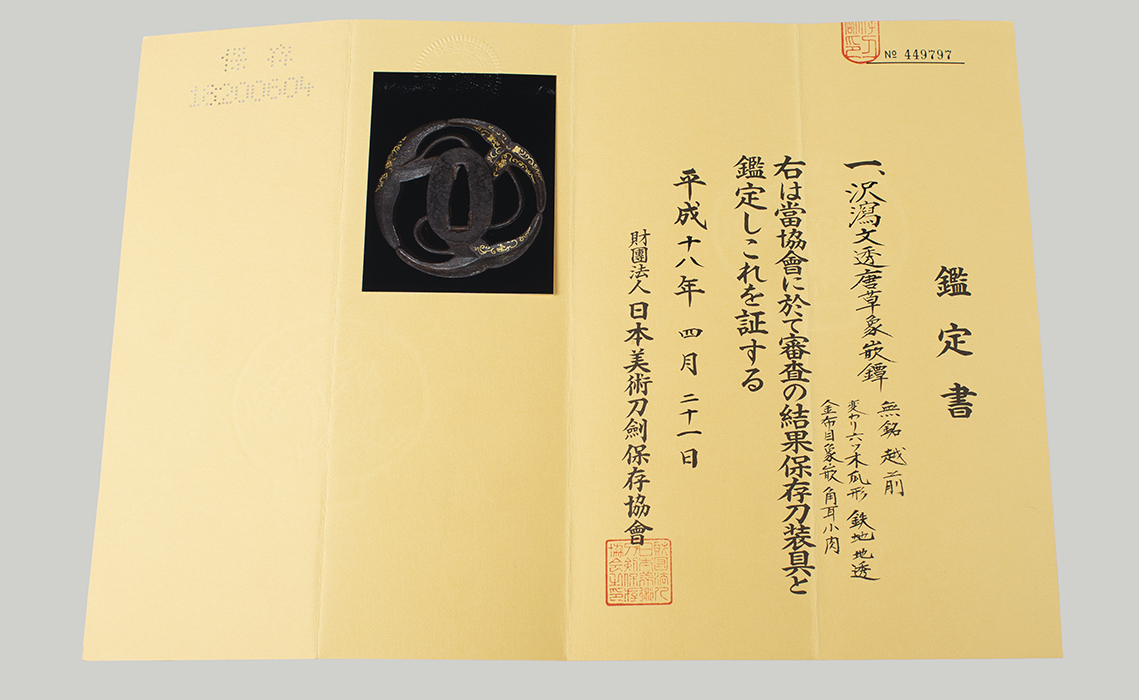 № 449797
鑑定書
一、沢瀉文透唐草象嵌鐔
無銘 越前
変わり六ツ木瓜形 鉄地地透
金布目象嵌 角耳小肉
右は當協會に於て審査の結果保存刀装具と
鑑定しこれを証する
平成十八年 四月 二十一日
財團法人 日本美術刀劍保存協會
保存
18200604